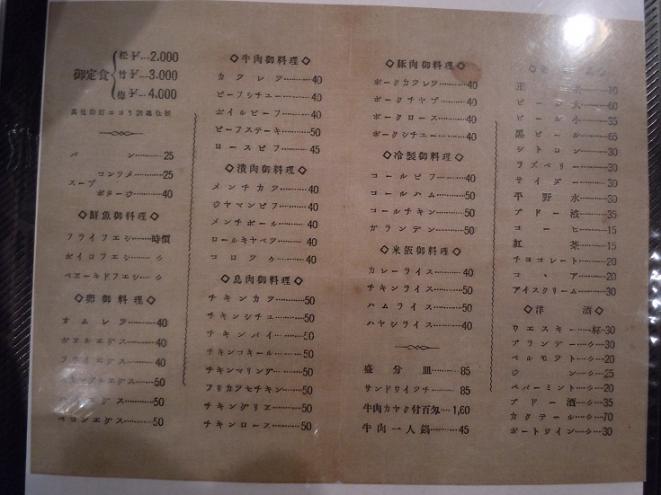 御定食
松ド…2.000
竹ド…3.000
梅ド…4.000
パン……25
スープ
コンソメ……25
ポタージ……40
◇鮮魚御料理◇
フライフエシ……時價
ボイロフエシ……〃
ベエーキドフエシ……〃
◇卵御料理◇
オムレツ……40
ボヌルエグス……40
フライエグス……40
エグス……50
ベコンエグス……50
◇牛肉御料理◇
カツレツ……40
ビーフシチュー……40
ボイルビーフ……40
ビーフステーキ……50
ロースビフ……45
◇潰肉御料理◇
メンチカツ……40
ウヤマンビフ……40
メンチボール……40
ロールキヤベツ……40
コロツケ……40
◇鳥肉御料理◇
チキンカツ……50
チキンシチュ……50
チキンパイ……50
チキンコキール……50
チキンマリング……50
フリカツセチキン……50
チキングリエ……50
チキンロース……50
◇豚肉御料理◇
ポークカツレツ……40
ポークチヤプ……40
ポークロース……40
ポークシチュー……40
◇冷製御料理◇
コールビーフ……40
コールハム……50
コールチキン……50
ガランデン……50
◇米飯御料理◇
カレーライス……40
チキンライス……50
ハムライス……50
ハヤシライス……40
盛分皿……85
サンドウイツチ……85
牛肉カヤク付百匁…1,60
牛肉一人鍋……45
ビール大……60
ビール小……35
黒ビール……65
シトロン……30
ラズベリー……30
サイダー……30
平野水……30
ブドー液……35
コーヒ……15
紅茶……15
チヨコレート……20
コヽア……20
アイスクリーム……30
◇洋酒◇
ウエスキー…一杯…30
ブランデー…〃…30
ベルモツト…〃…20
ジン……25
ペパーミント…〃…20
ブドー酒…〃…35
カクテール…〃…70
ポートワイン…〃…30